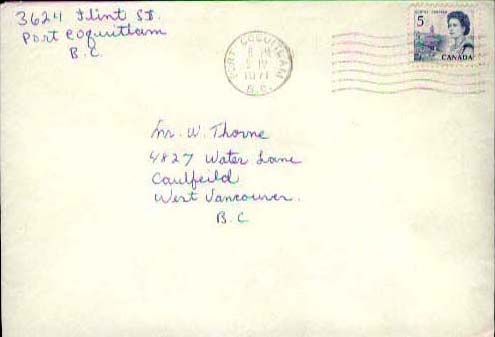 3624 Flint St.
Port Coquitlam
B.C.
PORT COQUITLAM
1971
B.C.
5
CANADA
Mr. W. Thorne
4827 Water Lane
Caulfeild
West Vancouver.
B.C